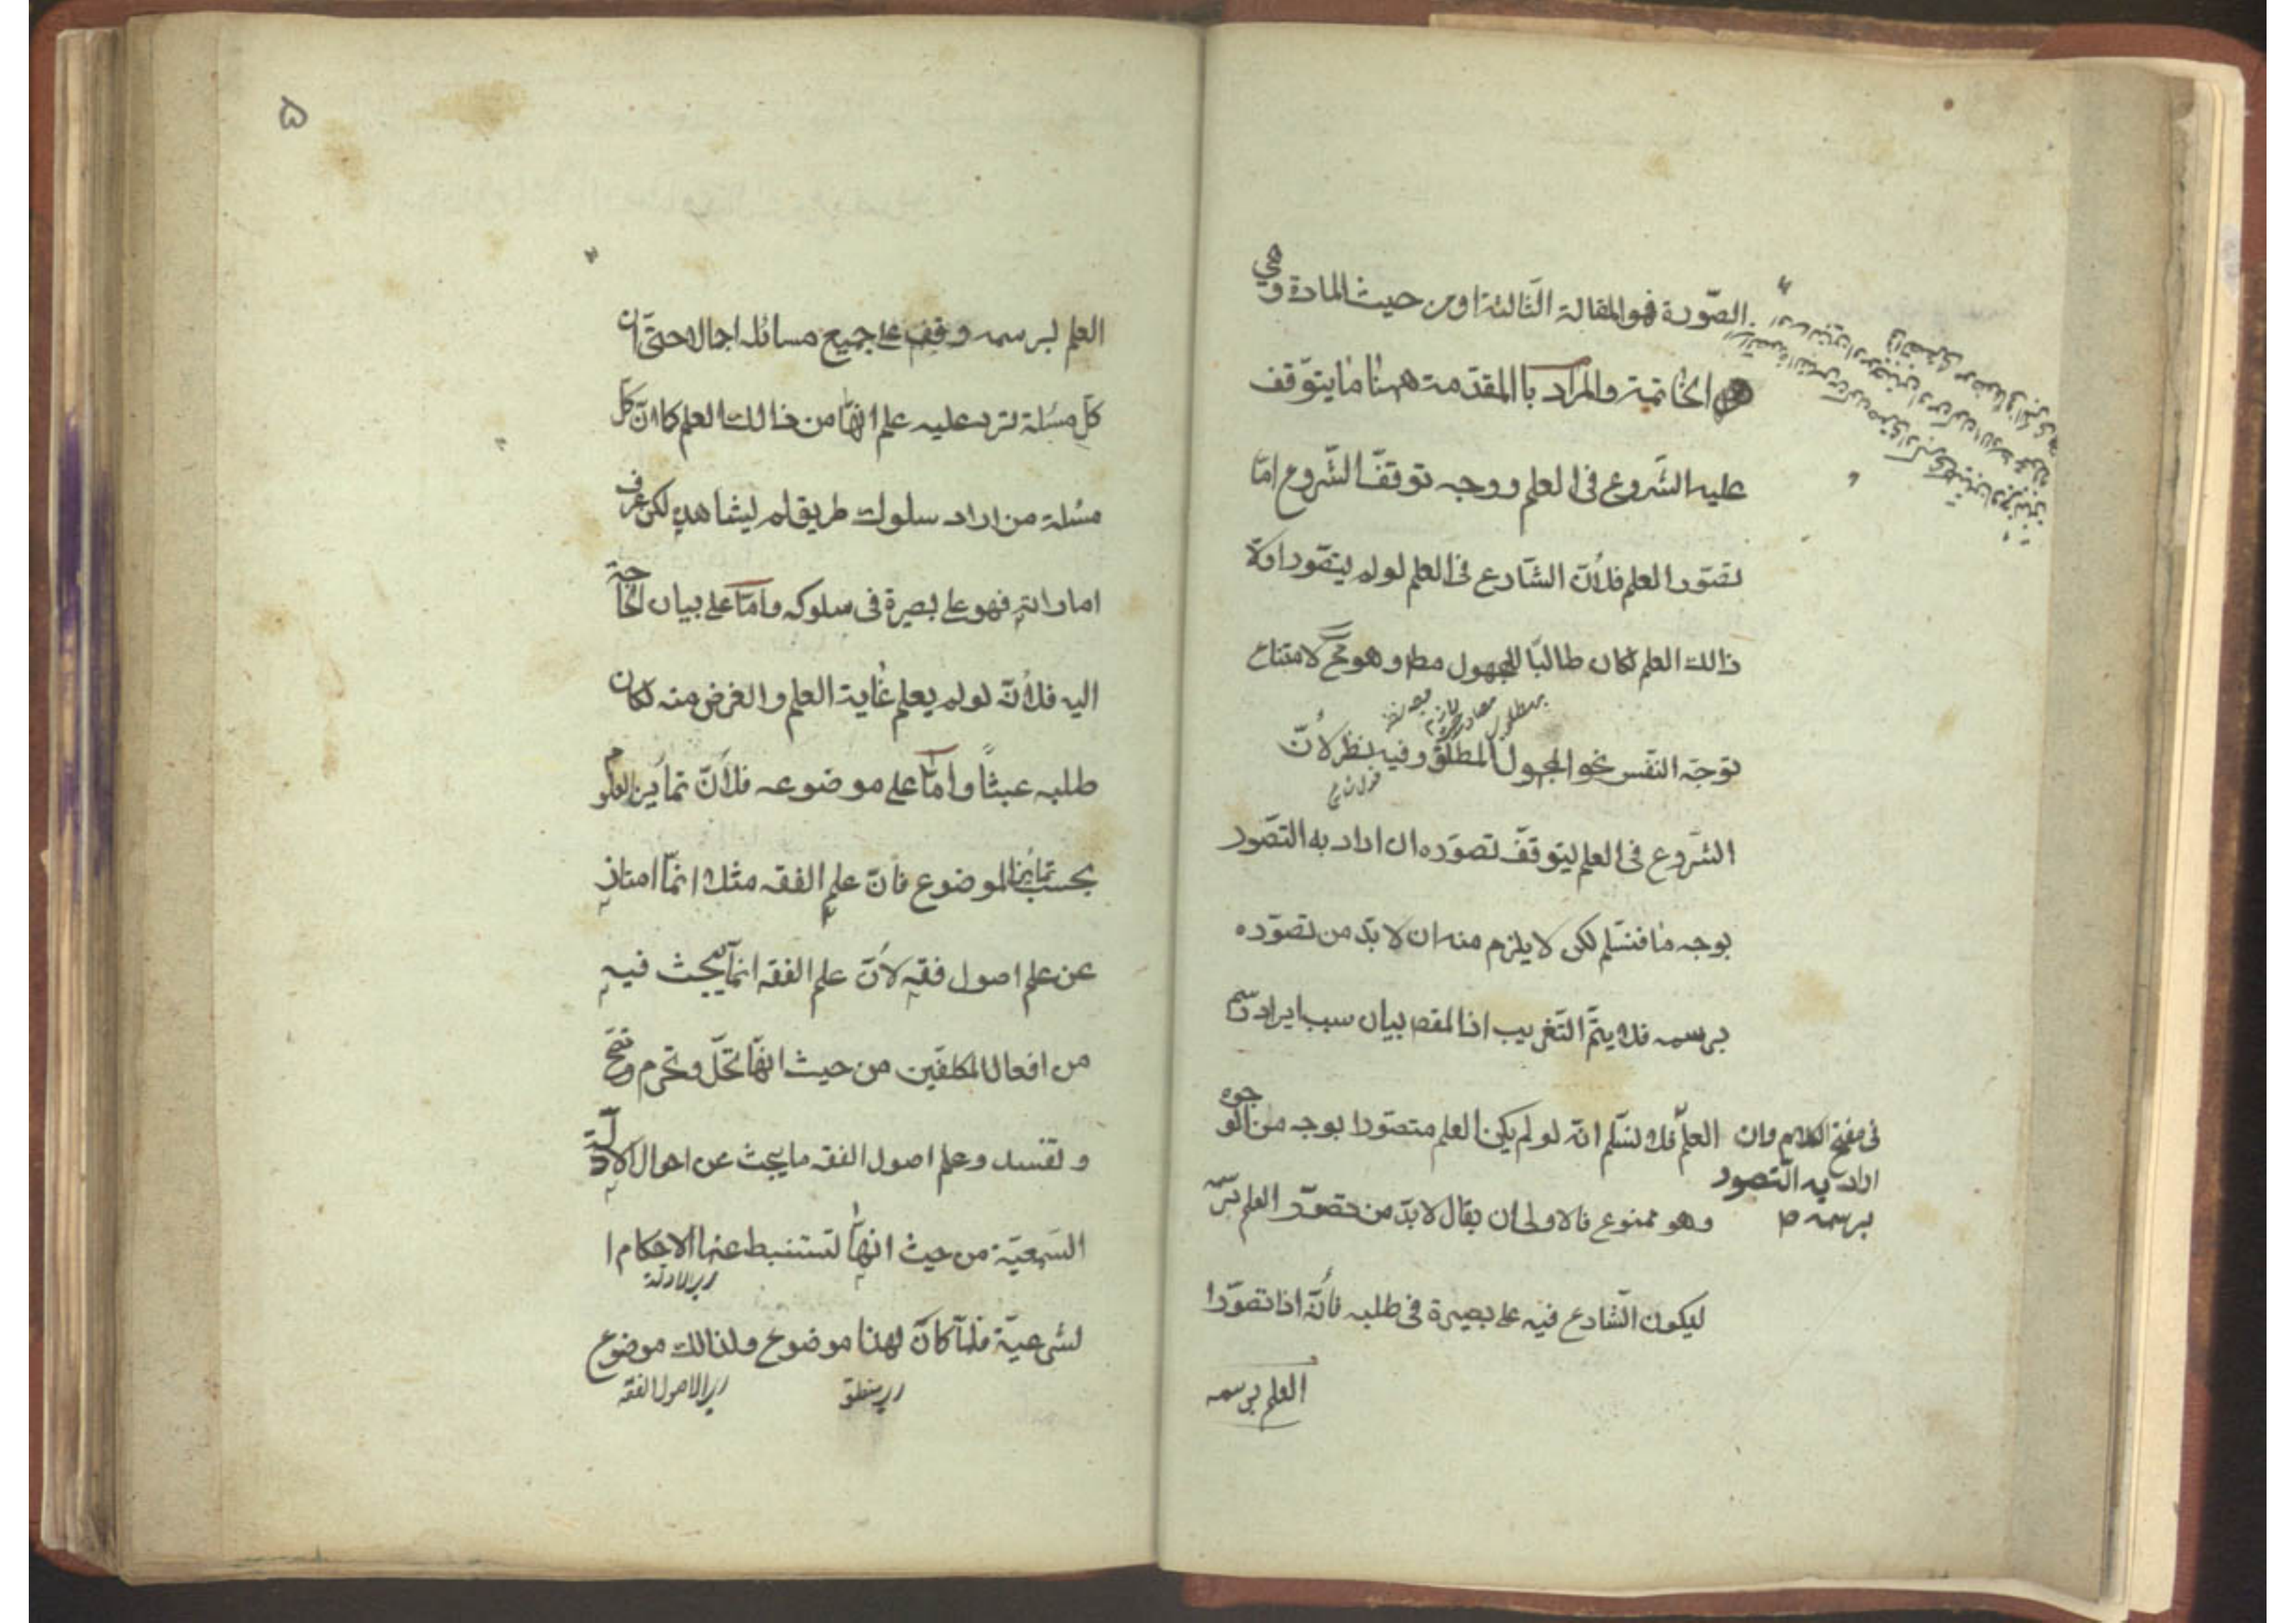 الصّورة فهو المقالة الثّالثة او من حيث المادة و هي
الخاتمة والمراد باالمقدّمة ههنا ما يتوّقف
عليه الشّروع فى العلم ووجه توقفّ الشّروع امّا
تصّور العلم فلأنّ الشّارع فى العلم لو لم يتصّور اولا
ذالك العلم لكان طالبًا للمجهول مط وهو مح لامتناع
توجّه النفّس نحو المجهول المطلق وفيه نظر لأنّ
الشّروع فى العلم ليتوقفّ تصوّره ان اراد به التصّور
بوجه ما فمسّلم لكن لا يلزم منه ان لا بدّ من تصوّره
برسمه فلا يتمّ التّغريب اذ المقصـ بيان سبب ايراد رسم
العلم فلا نسّلم انّه لو لم يكن العلم متصوّرا بوجه من الوجوه
فى مفتح الكلام وان
اراد به التّصور
برسمه ص
وهو ممنوع فالاولى ان يقال لا بدّ من تصوّر العلم برسمه
ليكون الشّارع فيه على بصيرة فى طلبه فانّه اذا تصوّرا
العلم برسمه
۵
العلم برسمه وقف على جميع مسائله اجمالا حتىّ ان
كلّ مسئلة ترد عليه علم انهّا من ذالك العلم كما انّ كلّ
مسئلة من اراد سلوك طريق لم يشاهده لكن عرف
اماراته فهو على بصيرة فى سلوكه وامّا على بيان الحاجة
اليه فلأنّه لو لم يعلم غاية العلم والغرض منه لكان
طلبه عبثًا وامّا على موضوعه فلأنّ تمايز العلوم
بحسب تمايز الموضوع فانّ علم الفقه مثلا انمّا امتاز
عن علم اصول فقه لأنّ علم الفقه انمّا يبحث فيه
من افعال المكلفّين من حيث انهّا تحلّ وتحرم وتصح
و تفسد وعلم اصول الفقه ما يبحث عن احوال الادلّة
السّمعيّة من حيث انهّا تستنبط عنها الاحكام ا
اى الادلة
لشرعيّة فلمّا كان لهذا موضوع ولذالك موضوع
اى منطق
اى الاصول الفقه